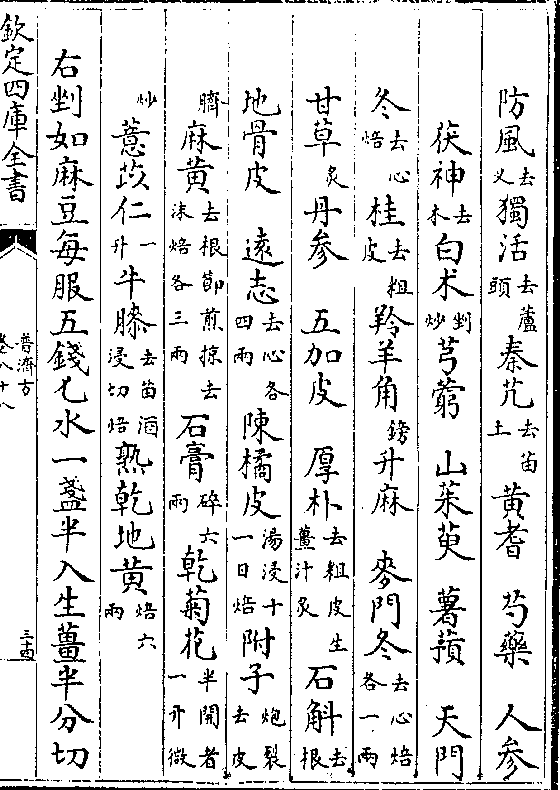 防風去叉獨活去蘆頭秦艽去苗土黄耆　芍藥　人參
茯神去木白术剉炒芎藭　山茱萸　薯蕷　天門
冬去心焙桂去粗皮羚羊角鎊升麻　麥門冬去心焙各一兩
甘草炙丹參　五加皮　厚朴去粗皮生薑汁炙石斛去根
地骨皮　遠志去心各四兩陳橘皮湯浸十一日焙附子炮裂去皮
臍麻黄去根節煎掠去沫焙各三兩石膏碎六兩乾菊花半開者一升微
炒薏苡仁一升牛膝去苗酒浸切焙熟乾地黄焙六兩
右剉如麻豆每服五錢匕水一盞半入生薑半分切
欽定四庫全書
普濟方
卷八十八
三十四